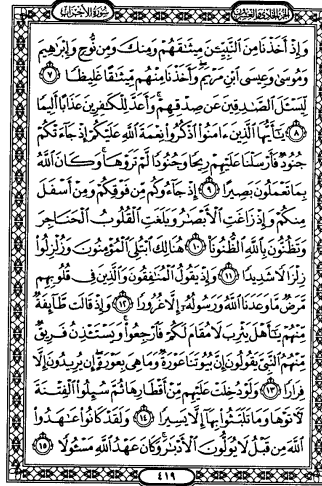 الجزء الحادي والعشرون سورة الأحزاب
وَإِذْ أَخَذْنَا مِنَ النَّبِيِّـۧنَ مِيثَاقَهُمْ وَمِنكَ وَمِن نُّوحٍ وَإِبْرَاهِيمَ
وَمُوسَىٰ وَعِيسَى ابْنِ مَرْيَمَ وَأَخَذْنَا مِنْهُم مِّيثَاقًا غَلِيظًا
٧ لِّيَسْـَٔلَ الصَّادِقِينَ عَن صِدْقِهِمْ وَأَعَدَّ لِلْكَافِرِينَ عَذَابًا أَلِيمًا
٨ يَا أَيُّهَا الَّذِينَ ءَامَنُوا اذْكُرُوا نِعْمَةَ اللَّهِ عَلَيْكُمْ إِذْ جَاءَتْكُمْ
جُنُودٌ فَأَرْسَلْنَا عَلَيْهِمْ رِيحًا وَجُنُودًا لَّمْ تَرَوْهَا وَكَانَ اللَّهُ
بِمَا تَعْمَلُونَ بَصِيرًا ٩ إِذْ جَاءُوكُم مِّن فَوْقِكُمْ وَمِنْ أَسْفَلَ
مِنكُمْ وَإِذْ زَاغَتِ الْأَبْصَارُ وَبَلَغَتِ الْقُلُوبُ الْحَنَاجِرَ
وَتَظُنُّونَ بِاللَّهِ الظُّنُونَا ١٠ هُنَالِكَ ابْتُلِيَ الْمُؤْمِنُونَ وَزُلْزِلُوا
زِلْزَالًا شَدِيدًا ١١ وَإِذْ يَقُولُ الْمُنَافِقُونَ وَالَّذِينَ فِي قُلُوبِهِم
مَّرَضٌ مَّا وَعَدَنَا اللَّهُ وَرَسُولُهُ إِلَّا غُرُورًا ١٢ وَإِذْ قَالَت طَّائِفَةٌ
مِّنْهُمْ يَا أَهْلَ يَثْرِبَ لَا مُقَامَ لَكُمْ فَارْجِعُوا وَيَسْتَـْٔذِنُ فَرِيقٌ
مِّنْهُمُ النَّبِيَّ يَقُولُونَ إِنَّ بُيُوتَنَا عَوْرَةٌ وَمَا هِيَ بِعَوْرَةٍ إِن يُرِيدُونَ إِلَّا
فِرَارًا ١٣ وَلَوْ دُخِلَتْ عَلَيْهِم مِّنْ أَقْطَارِهَا ثُمَّ سُئِلُوا الْفِتْنَةَ
لَءَاتَوْهَا وَمَا تَلَبَّثُوا بِهَا إِلَّا يَسِيرًا ١٤ وَلَقَدْ كَانُوا عَاهَدُوا
اللَّهَ مِن قَبْلُ لَا يُوَلُّونَ الْأَدْبَارَ وَكَانَ عَهْدُ اللَّهِ مَسْـُٔولًا ١٥
٤١٩